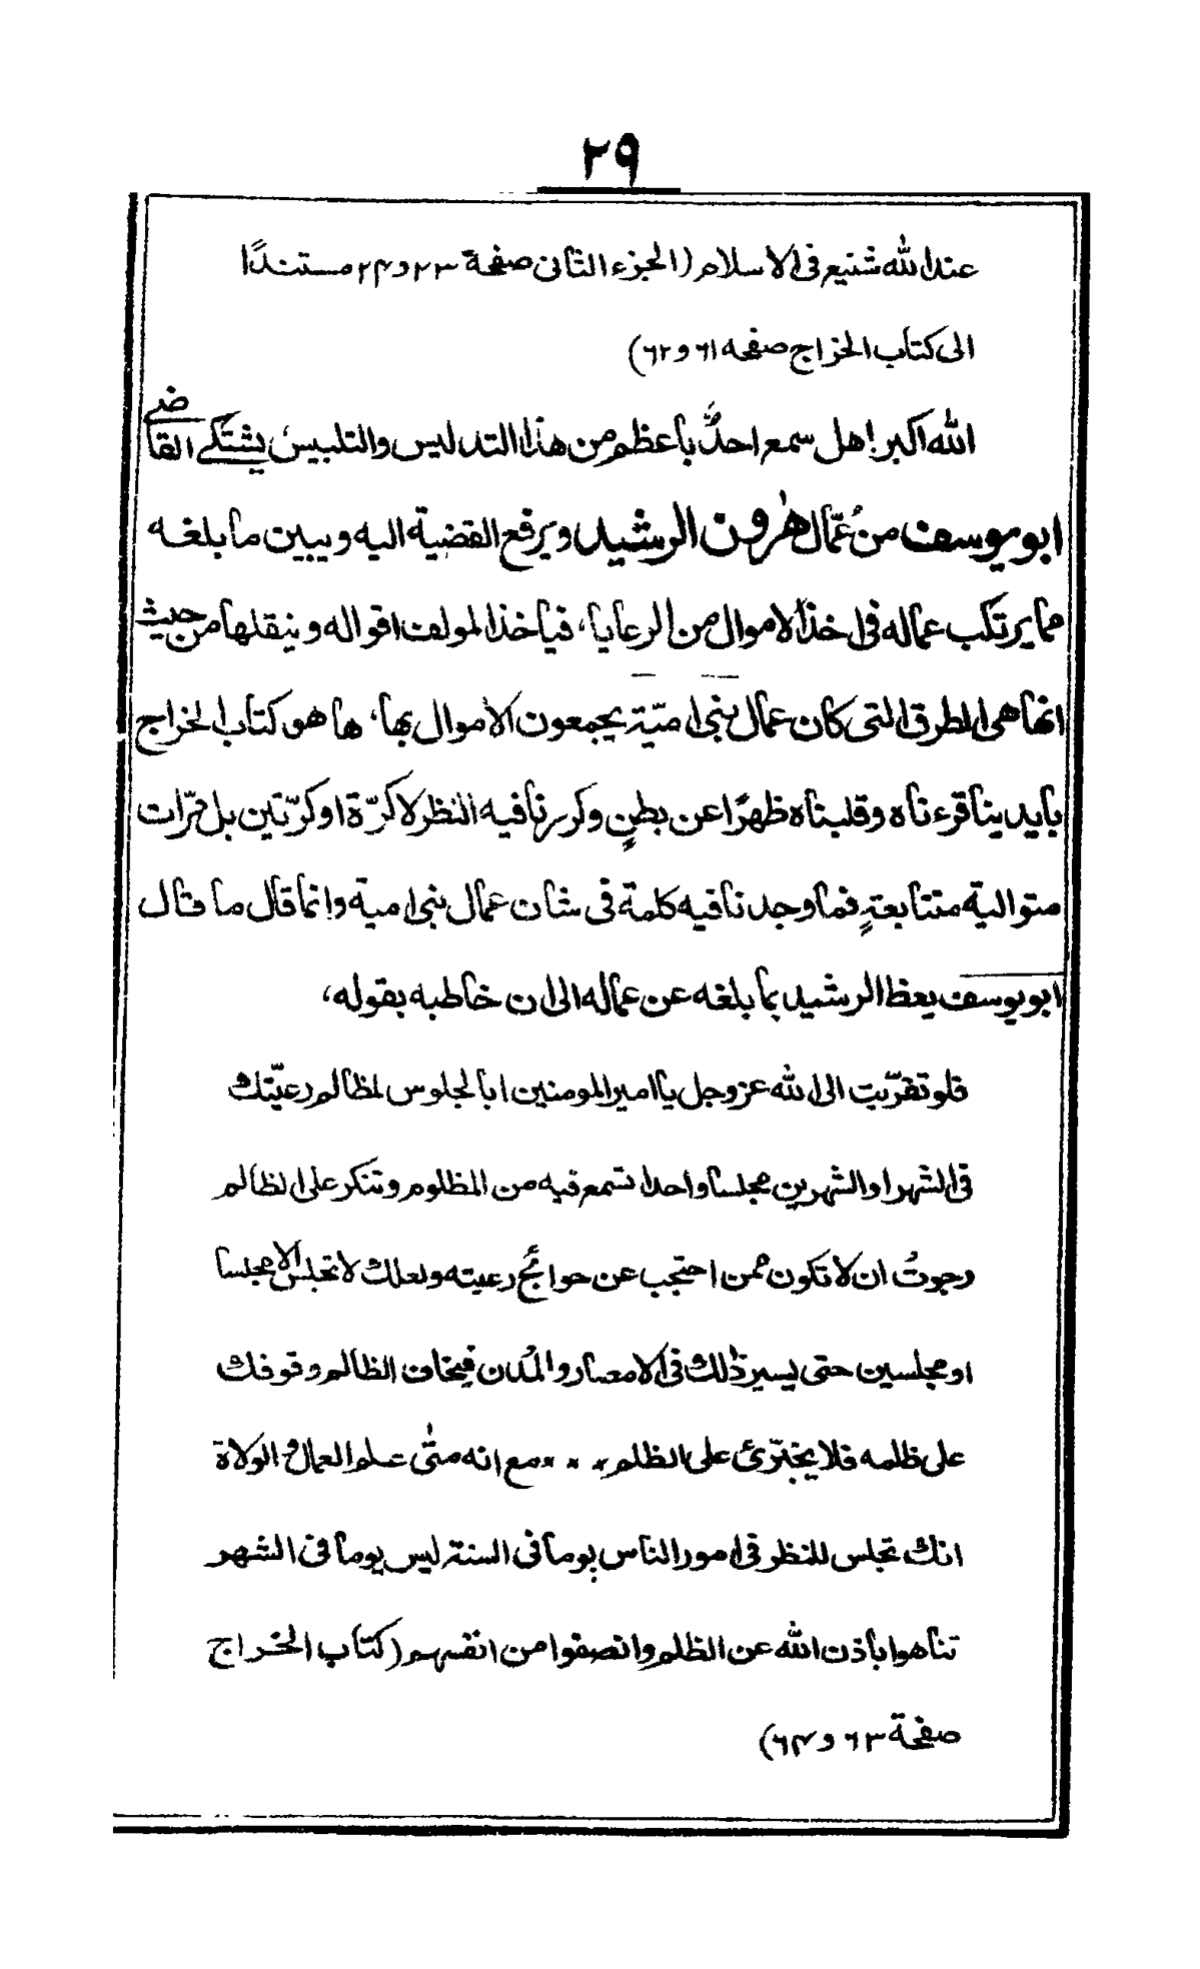 ٢٩
عند الله شنيع فى الاسلام (الجزء الثانى صفحة ٢٣ و ٢٤ مستندًا
الى كتاب الخراج صفحه ٦١ و ٦٢)
الله اكبر! هل سمع احدٌ باعظم من هذا التدليس والتلبيس يشتكى القاضى
ابو يوسف من عُمّال هٰرون الرشيد ويرفع القضية اليه ويبين ما بلغه
مما يرتكب عماله فى اخذ الاموال من الرعايا، فيأخذ المولف اقواله وينقلها من حيث
انها هى الطرق التى كان عمال بنى اميّة يجمعون الاموال بها، ها هو كتاب الخراج
بايدينا قرءناه وقلبناه ظهرًا عن بطنٍ وكررنا فيه النظر لا كرّة او كرّتين بل مرّات
متوالية متتابعةٍ فما وجدنا فيه كلمة فى شان عمال بنى امية وانما قال ما قال
ابو يوسف يعظ الرشيد بما بلغه عن عماله الى ان خاطبه بقوله،
فلو تقرّبت الى الله عز وجل يا امير المومنين ابالجلوس لمظالم رعيّتك
فى الشهر او الشهرين مجلسا واحدا تسمع فيه من المظلوم وتنكر على الظالم
رجوتُ ان لا تكون ممن احتجب عن حوائج رعيته ولعلك لا تجلس الا مجلسا
او مجلسين حتى يسير ذٰلك فى الامصار والمُدن فيخاف الظالم وقوفك
على ظلمه فلا يجترّئ على الظلم × × × مع انه متىٰ علم العمال والولاة
انك تجلس للنظر فى امور الناس يوما فى السنة ليس يوما فى الشهر
تناهوا باذن الله عن الظلم وانصفوا من انفسهم (كتاب الخراج
صفحة ٦٣ و ٦٤)